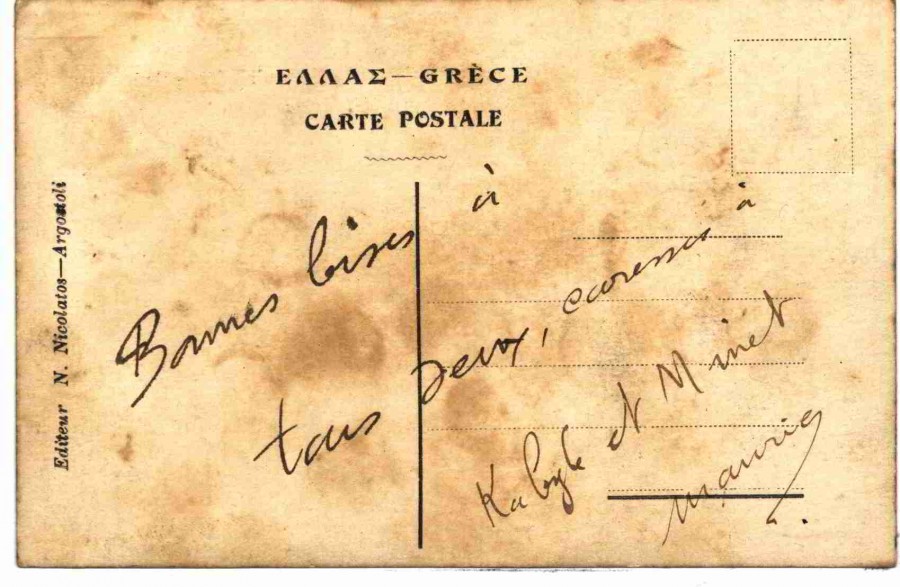 ΕΛΛΑΣ — GRÈCE
CARTE POSTALE
Editeur N. Nicolatos—Argostoli
Bonnes bises à
tous deux, caresses à
Kabyle et Minet
Maurice